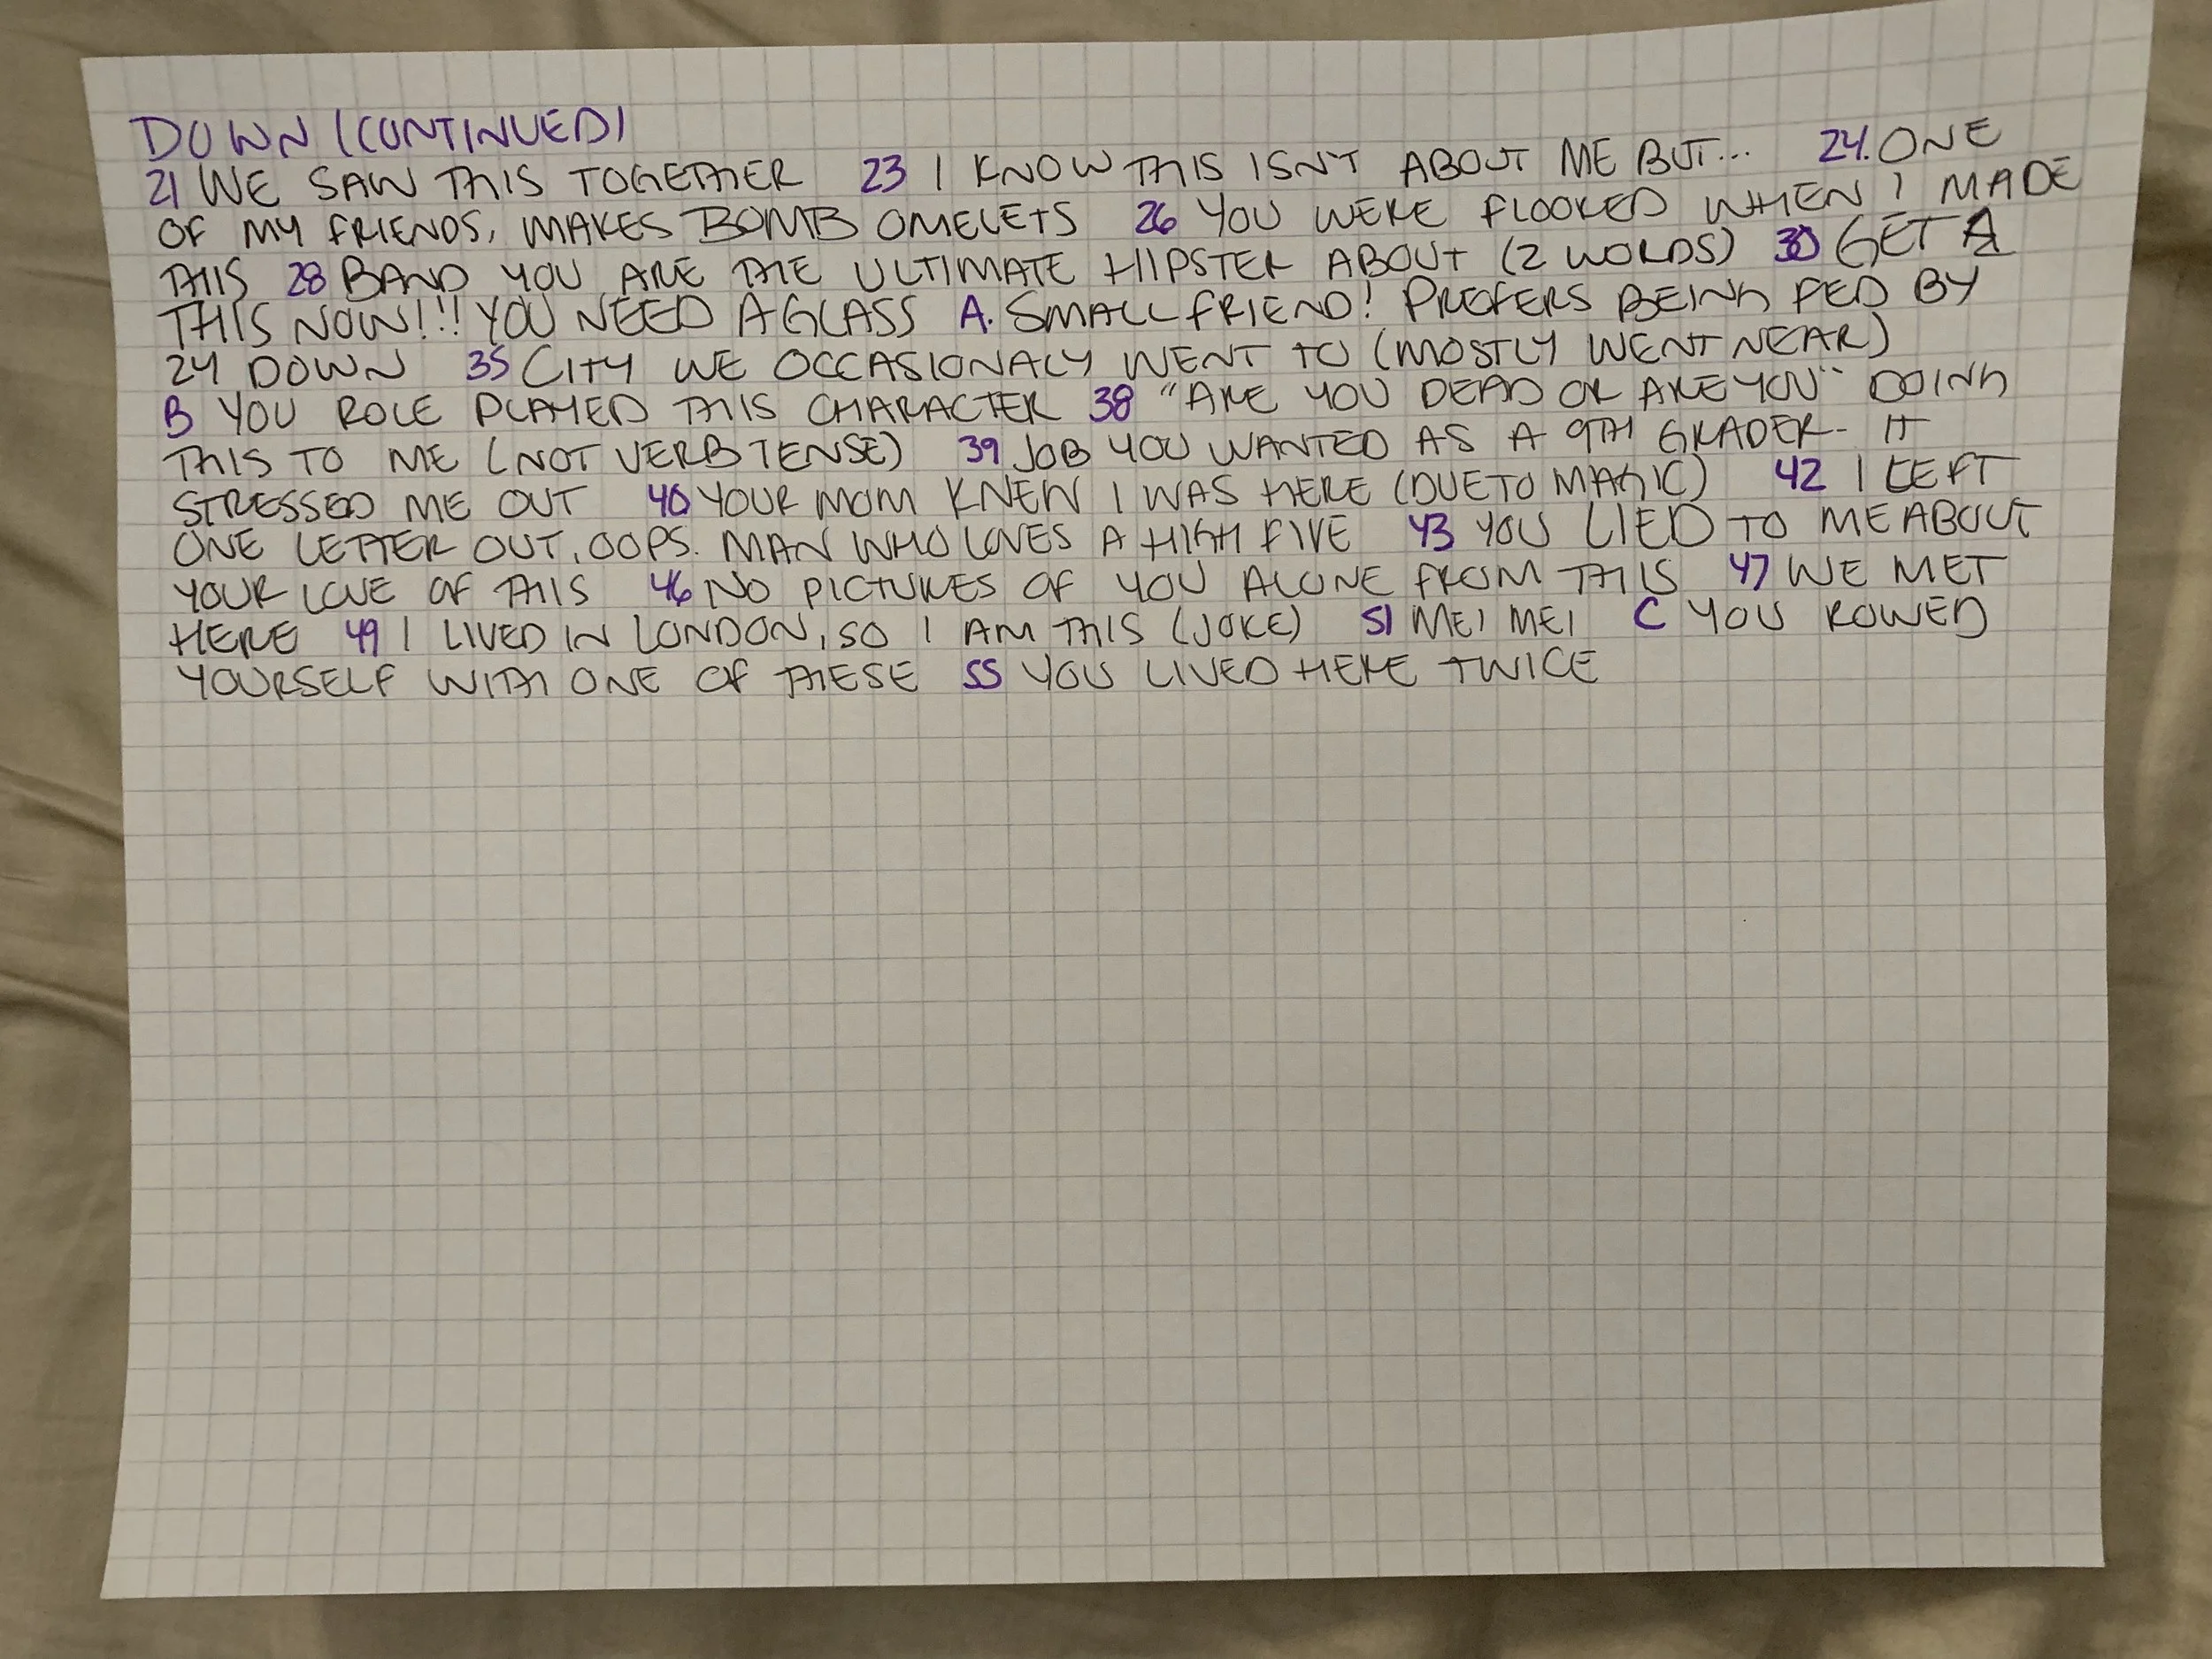 DOWN (CONTINUED)
21 WE SAW THIS TOGETHER 23 I KNOW THIS ISN'T ABOUT ME BUT... 24. ONE
OF MY FRIENDS, MAKES BOMB OMELETS 26 YOU WERE FLOORED WHEN I MADE
THIS 28 BAND YOU ARE THE ULTIMATE HIPSTER ABOUT (2 WORDS) 30 GET A
THIS NOW!!! YOU NEED A GLASS A. SMALL FRIEND! PREFERS BEING FED BY
24 DOWN 35 CITY WE OCCASIONALY WENT TO (MOSTLY WENT NEAR)
B YOU ROLE PLAYED THIS CHARACTER 38 "ARE YOU DEAD OR ARE YOU" DOING
THIS TO ME (NOT VERB TENSE) 39 JOB YOU WANTED AS A 9TH GRADER - IT
STRESSED ME OUT 40 YOUR MOM KNEW I WAS HERE (DUE TO MAGIC) 42 I LEFT
ONE LETTER OUT, OOPS. MAN WHO LOVES A HIGH FIVE 43 YOU LIED TO ME ABOUT
YOUR LOVE OF THIS 46 NO PICTURES OF YOU ALONE FROM THIS 47 WE MET
HERE 49 I LIVED IN LONDON, SO I AM THIS (JOKE) 51 MEI MEI C YOU ROWED
YOURSELF WITH ONE OF THESE 55 YOU LIVED HERE TWICE